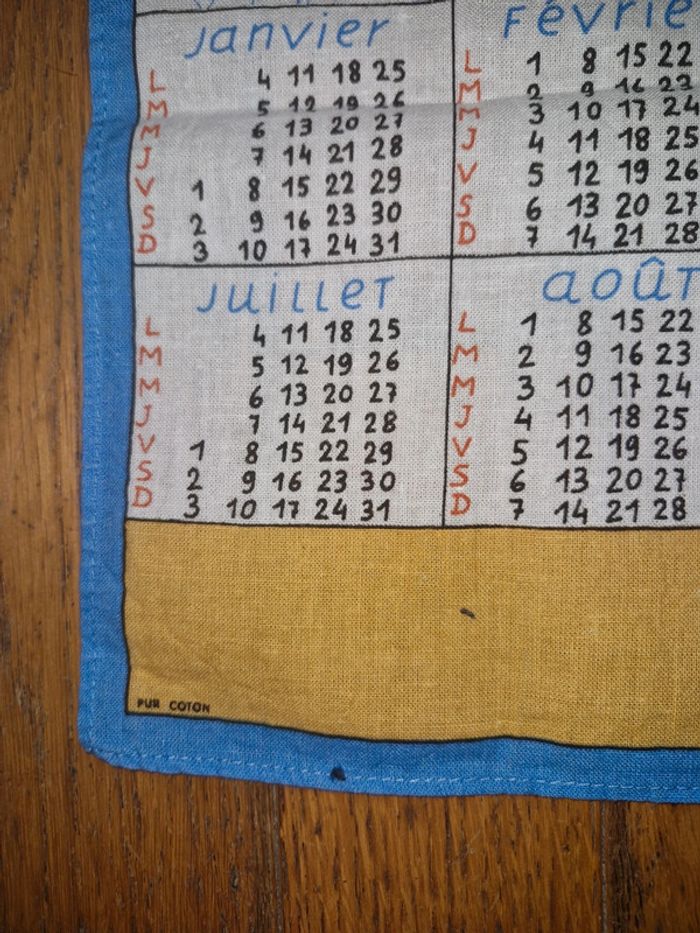 Janvier
L 4 11 18 25
M 5 12 19 26
M 6 13 20 27
J 7 14 21 28
V 1 8 15 22 29
S 2 9 16 23 30
D 3 10 17 24 31
Févrie
L 1 8 15 22
M 2 9 16 23
M 3 10 17 24
J 4 11 18 25
V 5 12 19 26
S 6 13 20 27
D 7 14 21 28
Juillet
L 4 11 18 25
M 5 12 19 26
M 6 13 20 27
J 7 14 21 28
V 1 8 15 22 29
S 2 9 16 23 30
D 3 10 17 24 31
août
L 1 8 15 22
M 2 9 16 23
M 3 10 17 24
J 4 11 18 25
V 5 12 19 26
S 6 13 20 27
D 7 14 21 28
PUR COTON